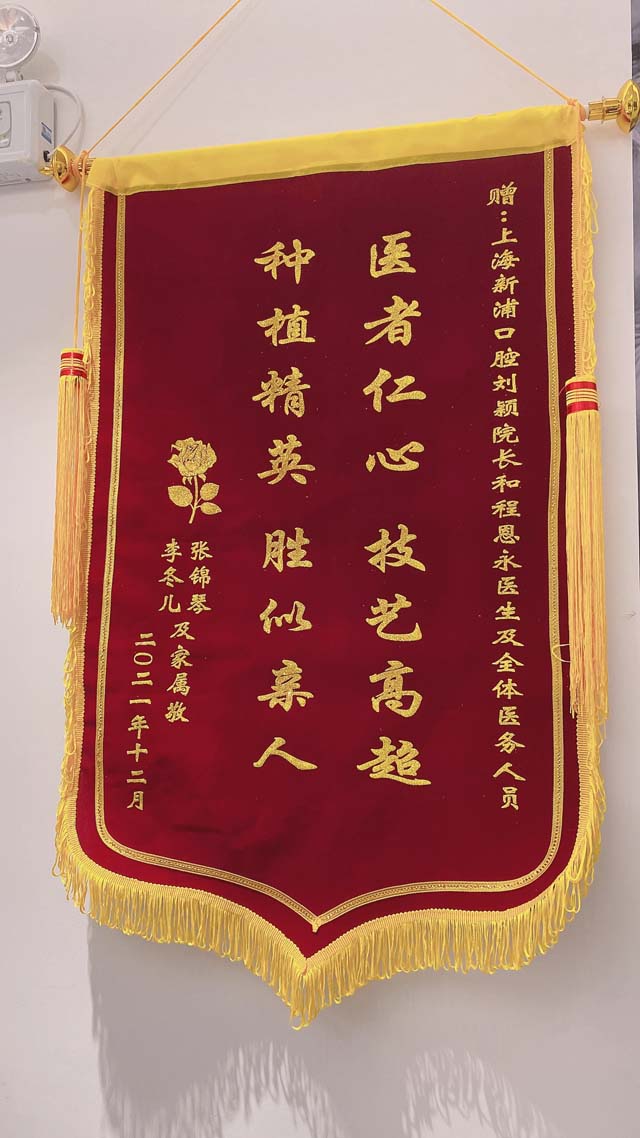 赠：上海新浦口腔刘颖院长和程恩永医生及全体医务人员
医者仁心 技艺高超
种植精英 胜似亲人
张锦琴
李冬儿
及家属敬
二〇二一年十二月